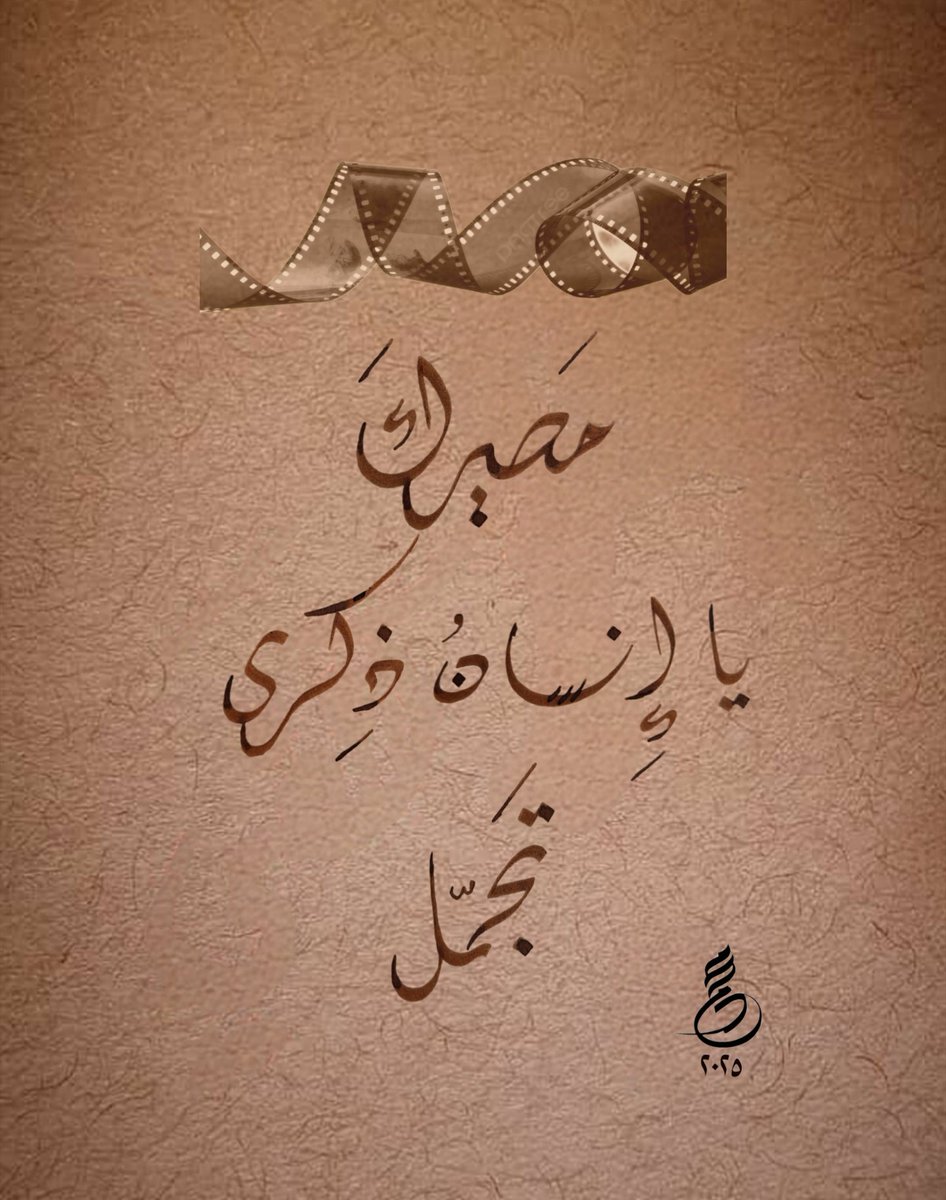 مَصيركَ
يا إِنسانُ ذِكرى
تَجمّل
٢٠٢٥